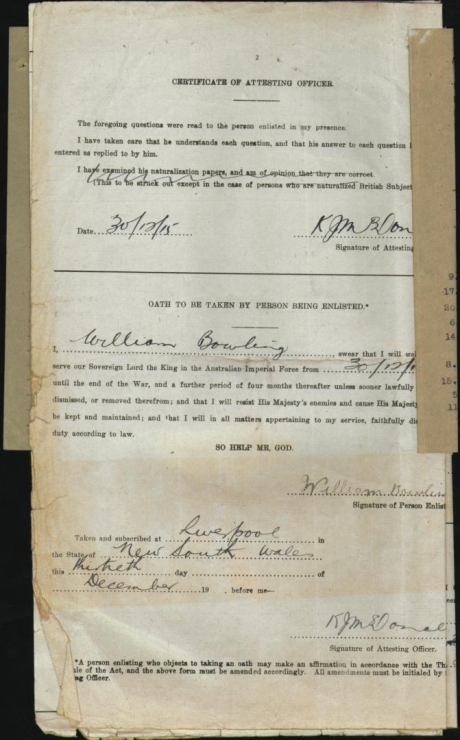 2
CERTIFICATE OF ATTESTING OFFICER
The foregoing questions were read to the person enlisted in my presence.
I have taken care that he understands each question, and that his answer to each question
entered as replied to by him.
I have examined his naturalization papers, and am of opinion that they are correct.
(This to be struck out except in the case of persons who are naturalized British Subject
Date 30/12/15
Signature of Attesting
OATH TO BE TAKEN BY PERSON BEING ENLISTED.*
I, William Bowling swear that I will we
serve our Sovereign Lord the King in the Australian Imperial Force from 30/12/1
until the end of the War, and a further period of four months thereafter unless sooner lawfully
dismissed, or removed therefrom; and that I will resist His Majesty's enemies and cause His Majesty
be kept and maintained; and that I will in all matters appertaining to my service, faithfully di
duty according to law.
SO HELP ME, GOD.
William Bowlin
Signature of Person Enlist
Taken and subscribed at Liverpool in
the State of New South Wales
this thirtieth day of
December 19 , before me—
Signature of Attesting Officer.
*A person enlisting who objects to taking an oath may make an affirmation in accordance with the Th
le of the Act, and the above form must be amended accordingly. All amendments must be initialed by
ng Officer.
9.
17.
20
6
14
8.
15.
5
11